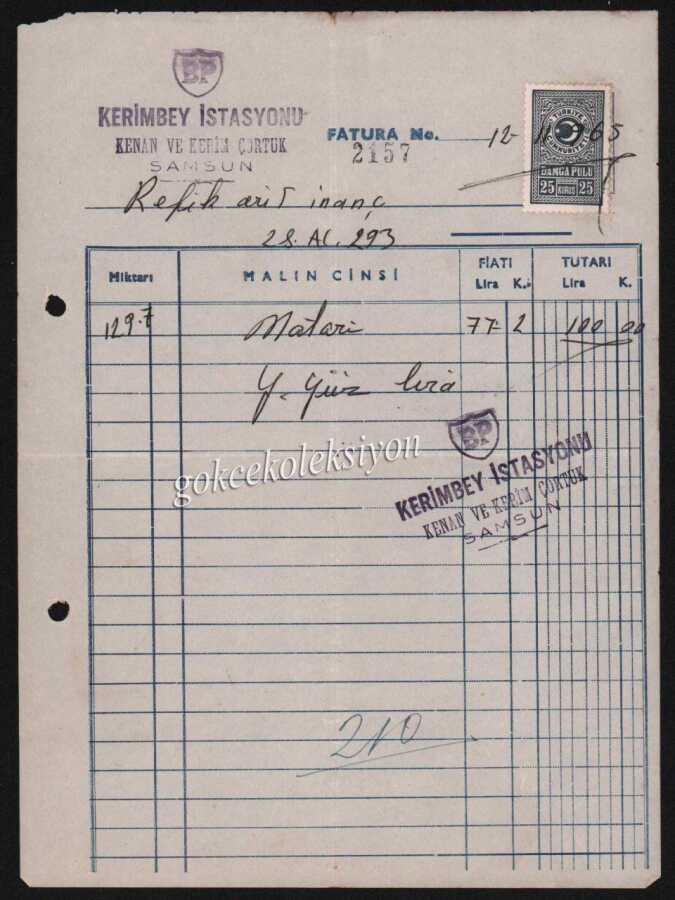 BP
KERİMBEY İSTASYONU
KENAN VE KERİM ÇORTUK
SAMSUN
FATURA No. 2157
12-11-965
TÜRKİYE CUMHURİYETİ
DAMGA PULU
25 KURUŞ 25
Refik arif inanç
28. AC. 293
Miktarı MALIN CİNSİ FİATI Lira K. TUTARI Lira K.
129.7 Motorin 77-2 100 00
Y. Yüz lira
gokcekoleksiyon
BP
KERİMBEY İSTASYONU
KENAN VE KERİM ÇORTUK
SAMSUN
210